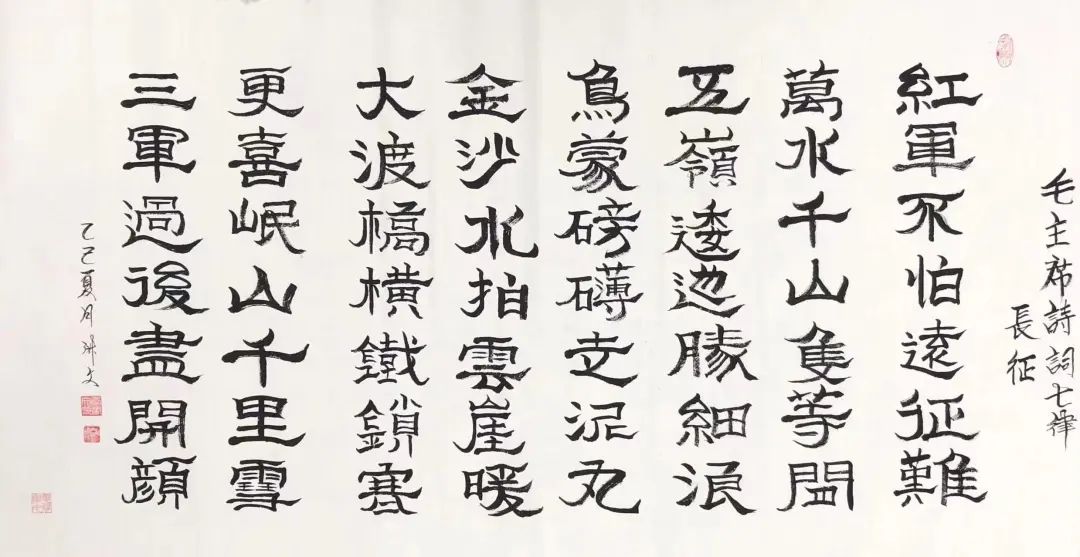 毛主席詩詞七律
長征
紅軍不怕遠征難
萬水千山隻等閒
五嶺逶迤騰細浪
烏蒙磅礴走泥丸
金沙水拍雲崖暖
大渡橋橫鐵鎖寒
更喜岷山千里雪
三軍過後盡開顏
乙巳夏月 文